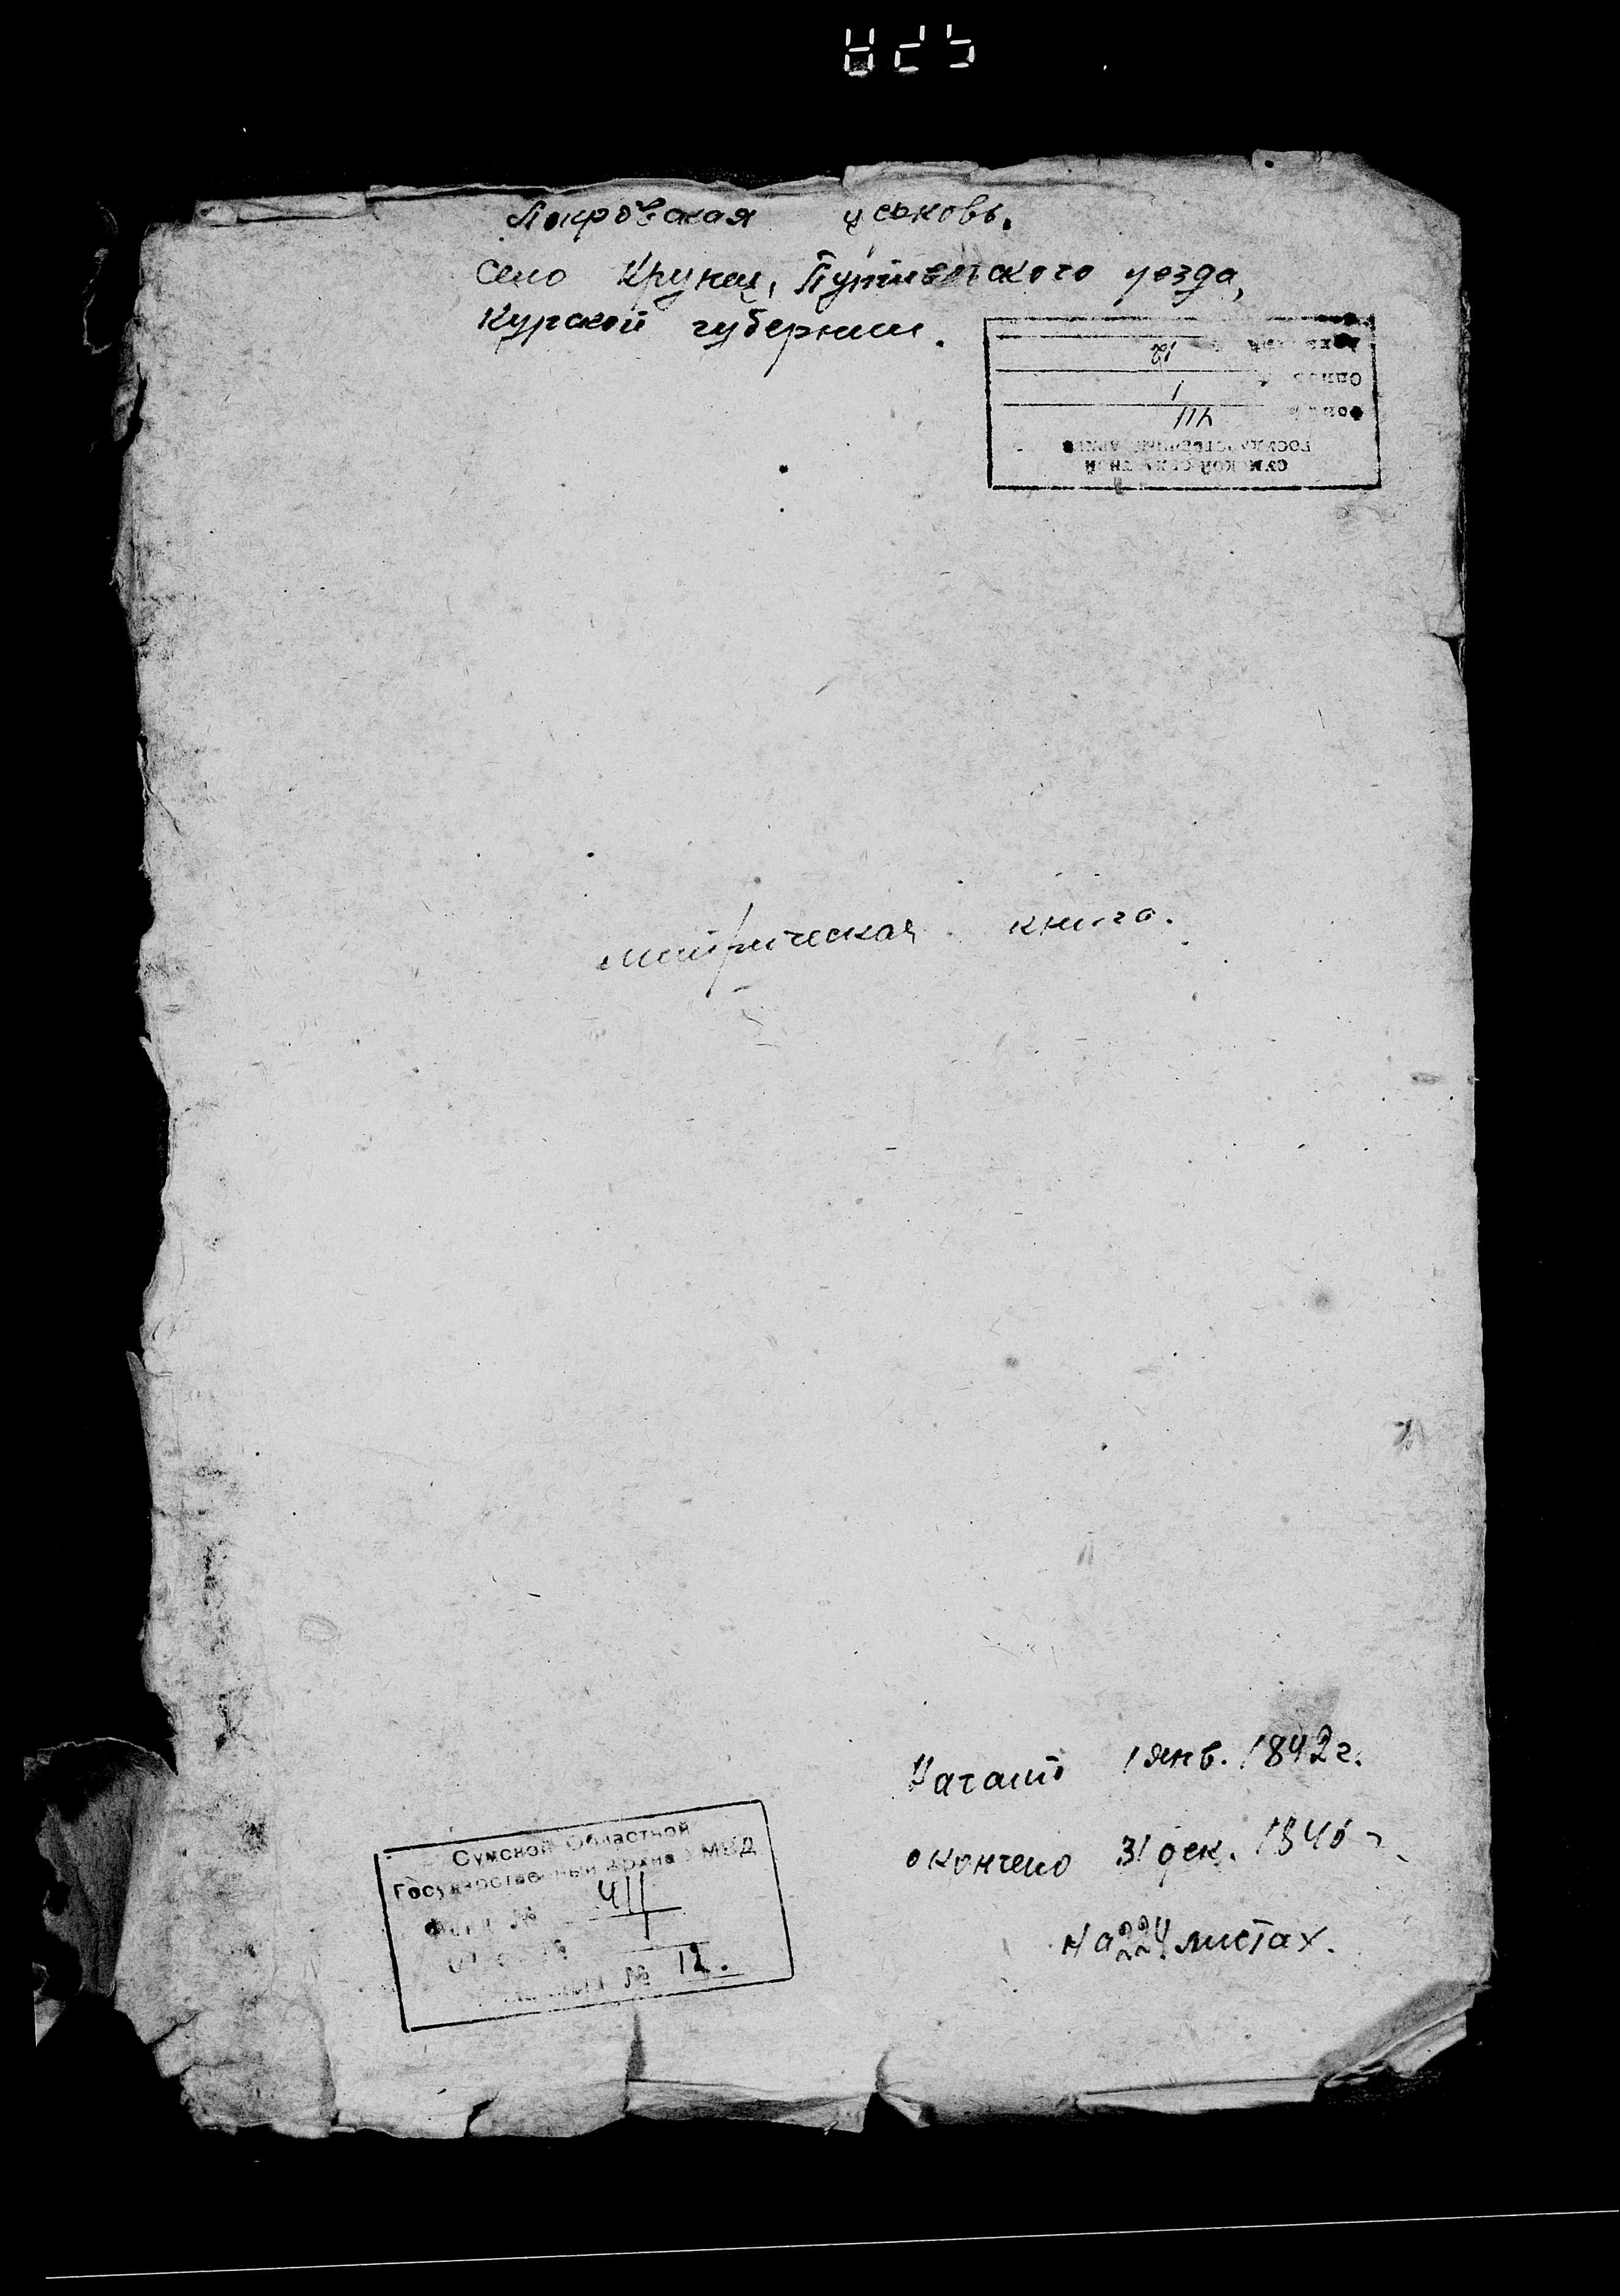 Покровская церковь.
Село Крупец, Путивльского уезда,
Курской губернии.
12
Опись 1
Фонд 411
ГОСУДАРСТВЕННЫЙ АРХИВ
СУМСКОЙ ОБЛАСТНОЙ
метрическая книга.
Начато 1 янв. 1842 г.
окончено 31 дек. 1846 г.
На 224 листах.
Сумской Областной
Государственный архив МВД
Фонд № 411
№ 12.